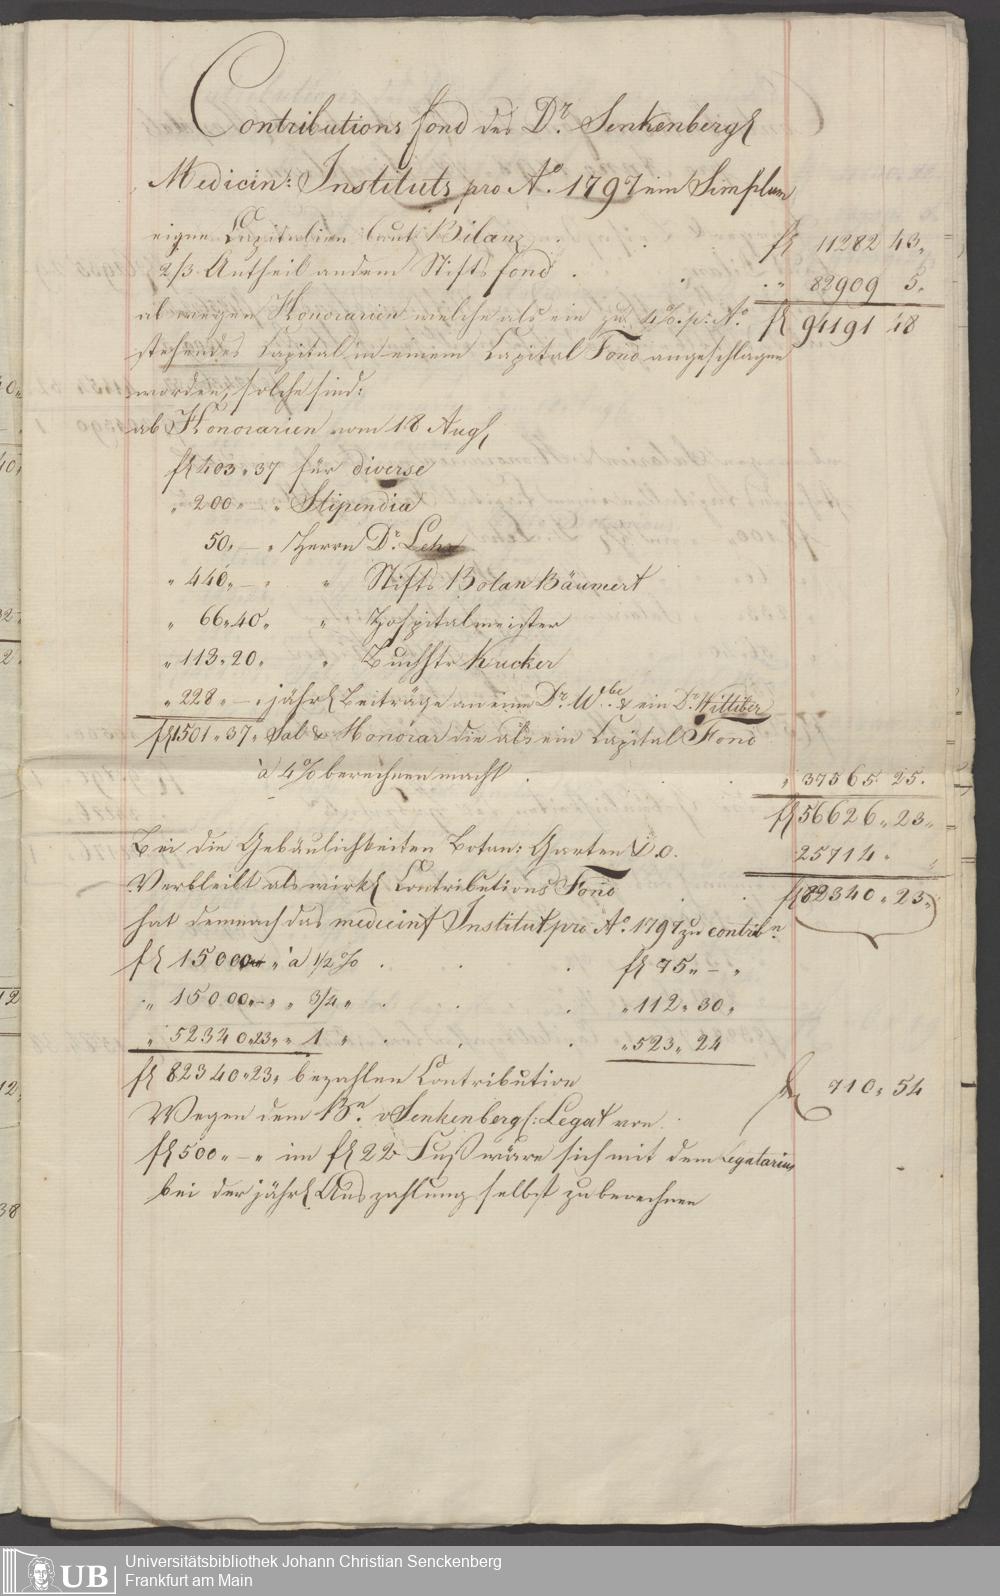 Contributions fond des Dr. Senkenberg
Medicin: Instituts pro Ao. 1797 ein Simplum
eigne Capitalien laut Bilanz . . . f 11282 43,,
2/3 Antheil an dem Stifts fond . . . ,, 82909 5,,
ab wegen Honorarien welche als ein zu 4 %. pr. Ao. f 94191 48
stehendes Capital in einem Capital Fond angeschlagen
worden, solche sind:
ab Honorarien vom 18 Aug
f 403,, 37 für diverse
,, 200,, — ,, Stipendia
50,, — ,, Herrn Dr. Lehr
,, 440,, — ,, ,, Stifts Botan Bäumert
,, 66,, 40,, ,, Hospitalmeister
,, 113,, 20,, ,, Buchhtr Kucker
,, 228,, — ,, jährl Beiträge an eine Dr. Wbe. & ein Dr.
f 1501,, 37,, Sal & Honorar die als ein Capital Fond
à 4 % berechnen macht . . . ,, 37565. 25.
f 56626,, 23,,
Bei die Gebäulichkeiten Botan: Garten &. 25714,,
Verbleibt als wirkl Contributions Fond . . f 82340,, 23,,
hat demnach das medicin Institut pro Ao. 1797 zu contribn
f 15000 ,, à 1/2 % . . . f 75,, — ,,
,, 15000,, — ,, 3/4 ,, . . ,, 112,, 30,,
,, 52340,, 23,, ,, 1 ,, . . . ,, 523,, 24
f 82340,, 23,, bezahlen Contribution f 710,, 54
Wegen dem Bn. v Senkenberg: Legat von
f 500,, — ,, im f 22 Fuß wäre sich mit dem Legatarius
bei der jährl Auszahlung selbst zu berechnen
UB
Universitätsbibliothek Johann Christian Senckenberg
Frankfurt am Main